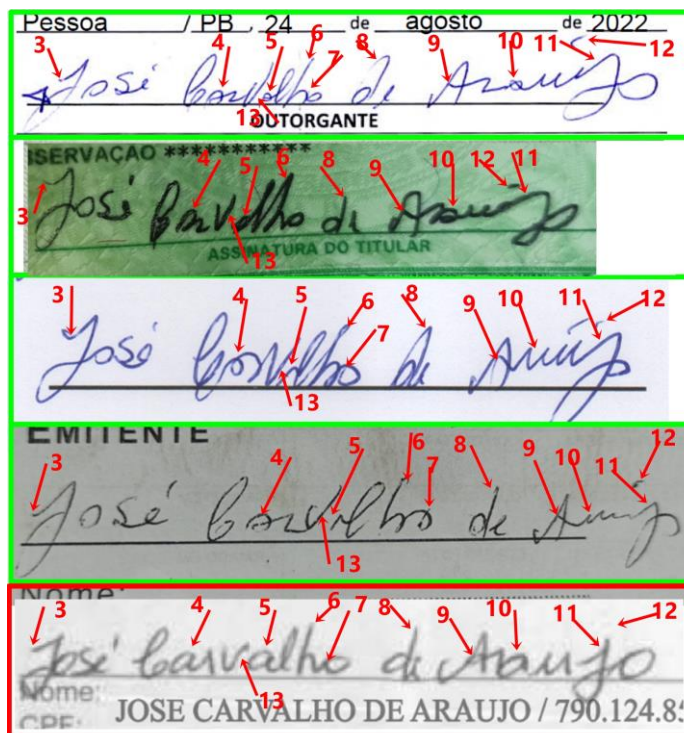 Pessoa / PB , 24 de agosto de 2022
3 4 5 6 7 8 9 10 11 12
José Carvalho de Araujo
13
OUTORGANTE
ISERVAÇÃO ***********
3 4 5 6 8 9 10 12 11
José Carvalho de Araujo
13
ASSINATURA DO TITULAR
3 4 5 6 7 8 9 10 11 12
José Carvalho de Araújo
13
EMITENTE
3 4 5 6 7 8 9 10 11 12
José Carvalho de Araujo
13
Nome:
3 4 5 6 7 8 9 10 11 12
José Carvalho de Araujo
13
Nome:
CPF: JOSE CARVALHO DE ARAUJO / 790.124.85